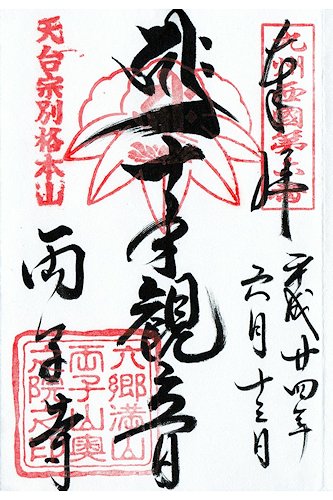 九州西國第六番
奉拝
平成廿四年
六月十三日
千手観音
天台宗別格本山
両子寺
六郷満山
両子山奥
之院之印